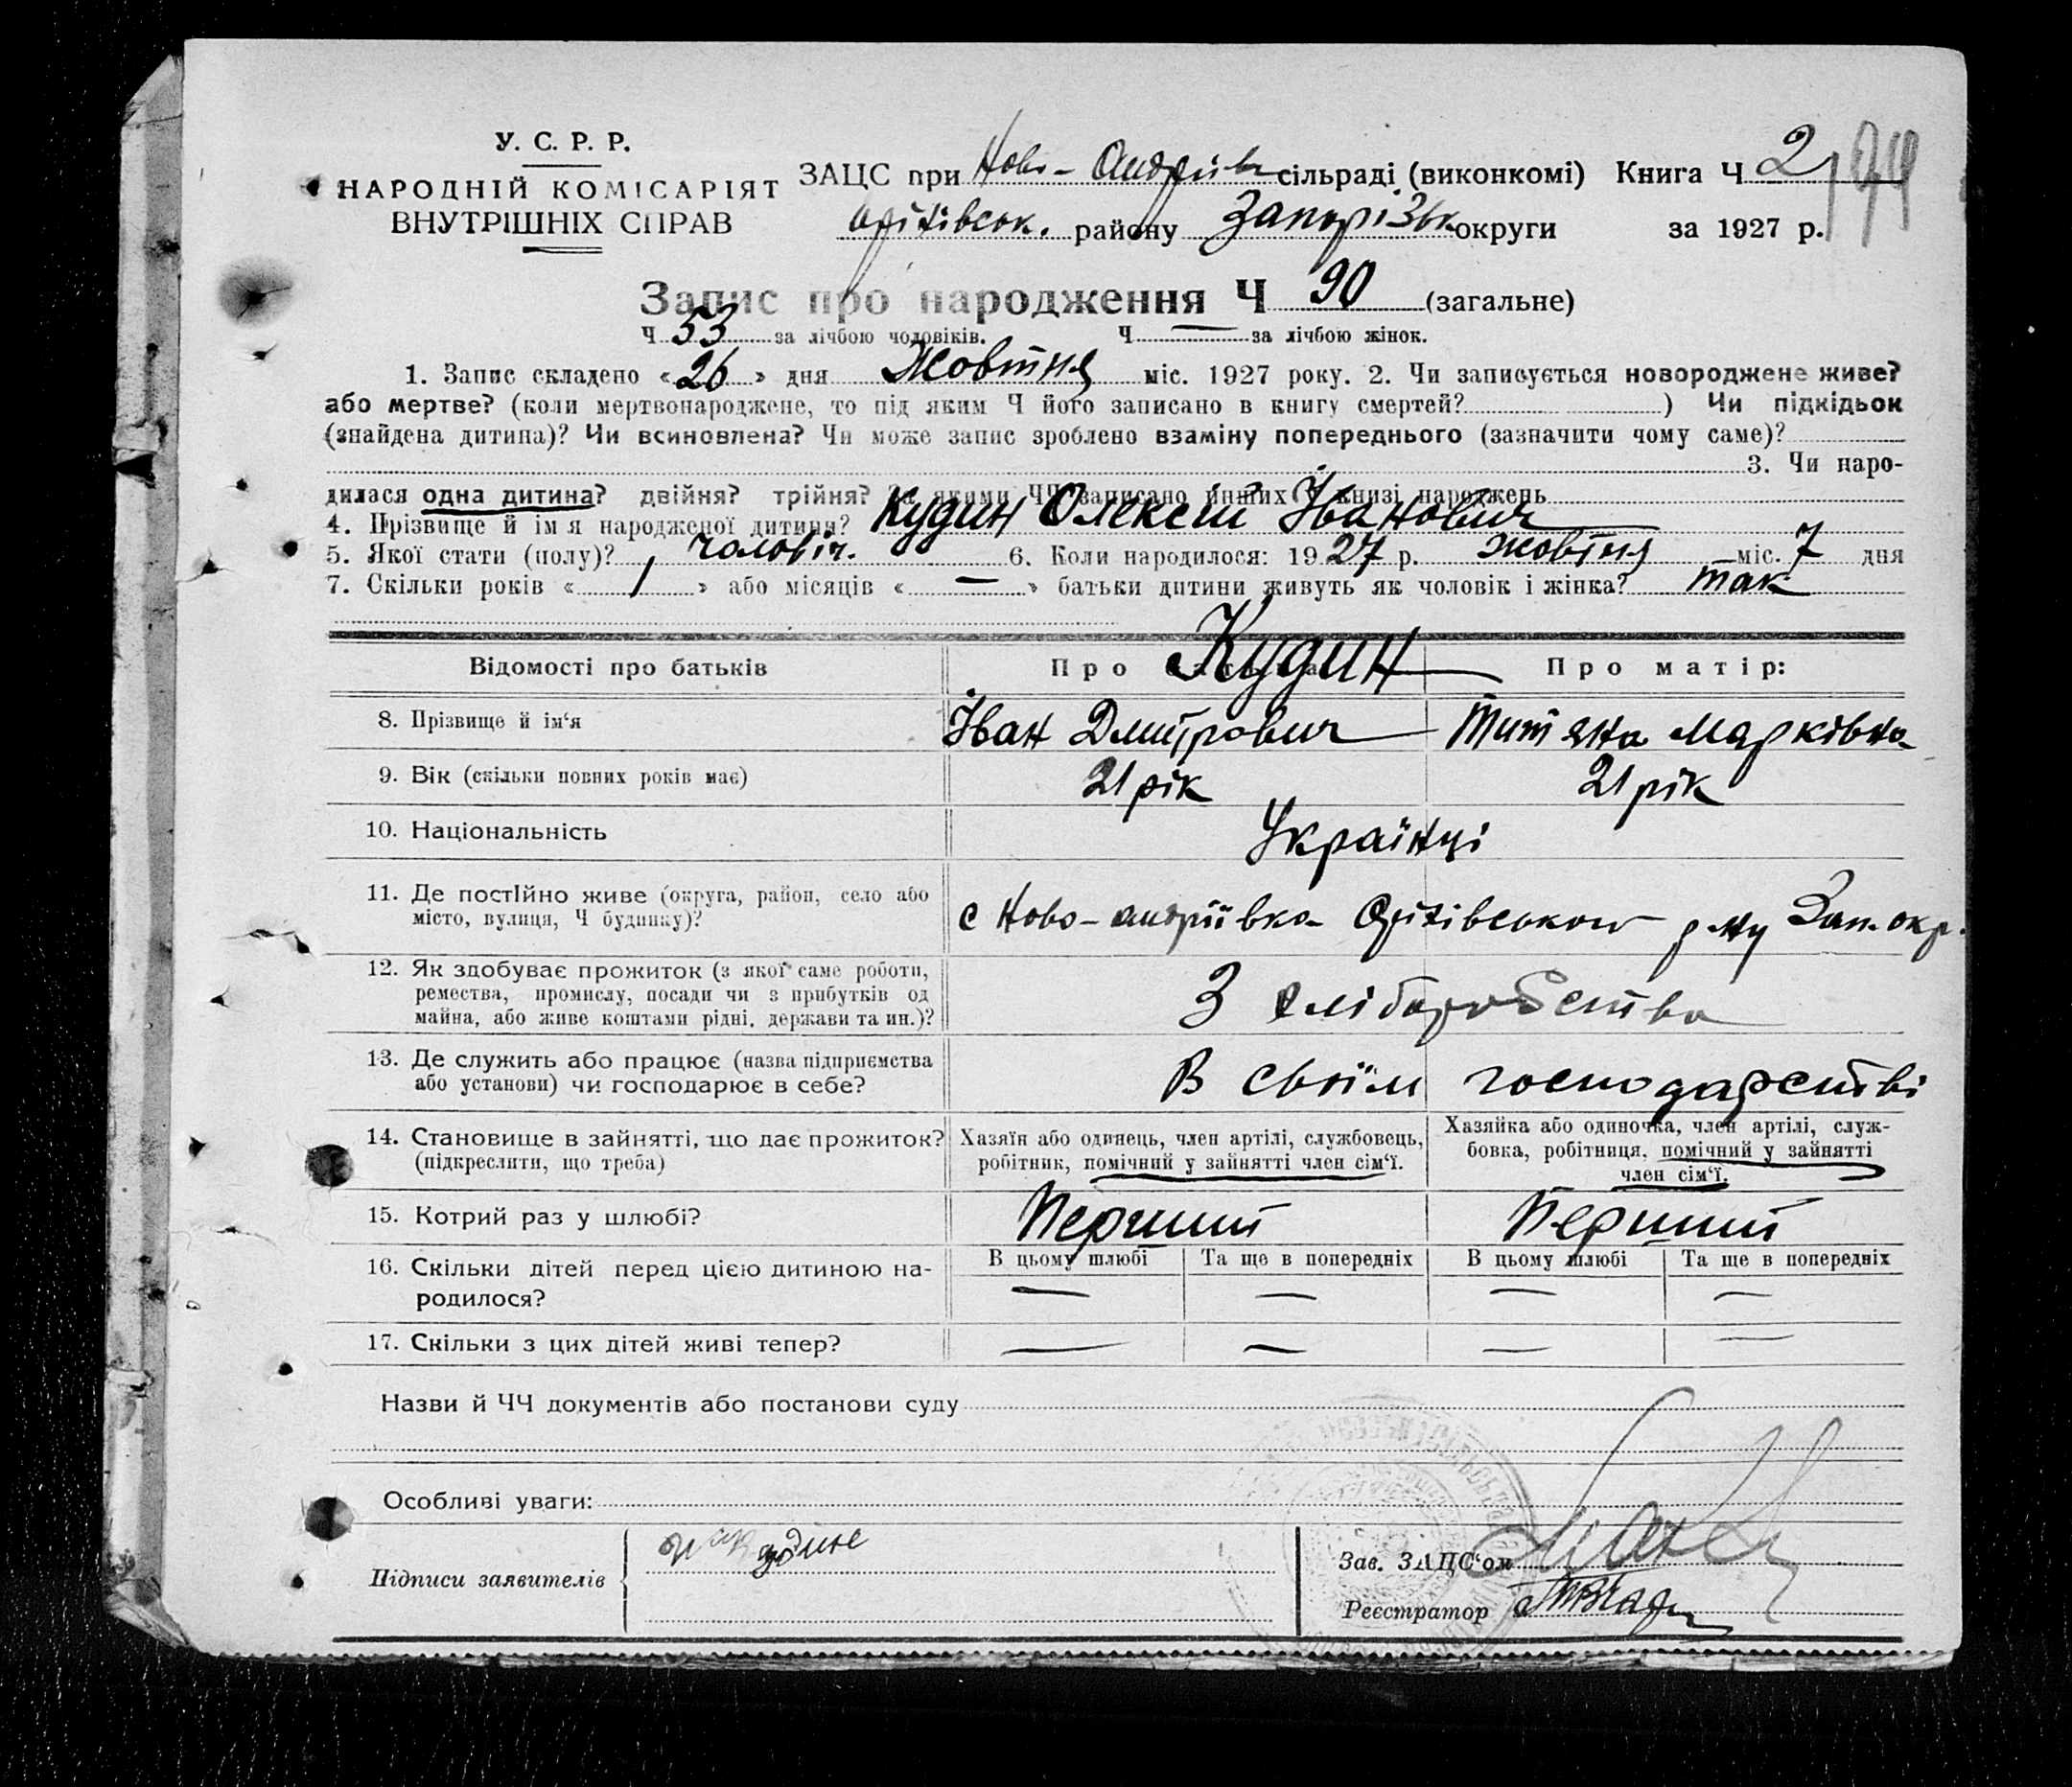 У. С. Р. Р.
НАРОДНІЙ КОМІСАРІЯТ
ВНУТРІШНІХ СПРАВ
ЗАЦС при Ново-Андріїв сільраді (виконкомі) Книга Ч 2
Оріхівськ. району Запорізьк округи за 1927 р.
Запис про народження Ч 90 (загальне)
Ч 53 за лічбою чоловіків. Ч — за лічбою жінок.
1. Запис складено «26» дня Жовтня міс. 1927 року. 2. Чи записується новороджене живе?
або мертве? (коли мертвонароджене, то під яким Ч його записано в книгу смертей? ) Чи підкідьок
(знайдена дитина)? Чи всиновлена? Чи може запис зроблено взаміну попереднього (зазначити чому саме)?
3. Чи наро-
дилася одна дитина? двійня? трійня? За якими ЧЧ записано инших у книзі народжень
4. Прізвище й ім я народженої дитини? Кудин Олексій Іванович
5. Якої стати (полу)? чоловіч. 6. Коли народилося: 1927 р. жовтня міс. 7 дня
7. Скільки років « 1 » або місяців « — » батьки дитини живуть як чоловік і жінка? так
Відомості про батьків Про батька Кудин Про матір:
8. Прізвище й ім‘я Іван Дмитрович Титяна Марківна
9. Вік (скільки повних років має) 21 рік 21 рік
10. Національність Українці
11. Де постійно живе (округа, район, село або
місто, вулиця, Ч будинку)? с Ново-андріївка Оріхівського р-ну Зап. окр.
12. Як здобуває прожиток (з якої саме роботи,
ремества, промислу, посади чи з прибутків од
майна, або живе коштами рідні, держави та ин.)? З хліборобства
13. Де служить або працює (назва підприємства
або установи) чи господарює в себе? В своїм господарстві
14. Становище в зайнятті, що дає прожиток?
(підкреслити, що треба)
Хазяїн або одинець, член артілі, службовець,
робітник, помічний у зайнятті член сім‘ї.
Хазяйка або одиночка, член артілі, служ-
бовка, робітниця, помічний у зайнятті
член сім‘ї.
15. Котрий раз у шлюбі? Перший Перший
16. Скільки дітей перед цією дитиною на-
родилося?
В цьому шлюбі Та ще в попередніх В цьому шлюбі Та ще в попередніх
— — — —
17. Скільки з цих дітей живі тепер? — — — —
Назви й ЧЧ документів або постанови суду
Особливі уваги:
Підписи заявителів
Зав. ЗАЦС‘ом
Реєстратор